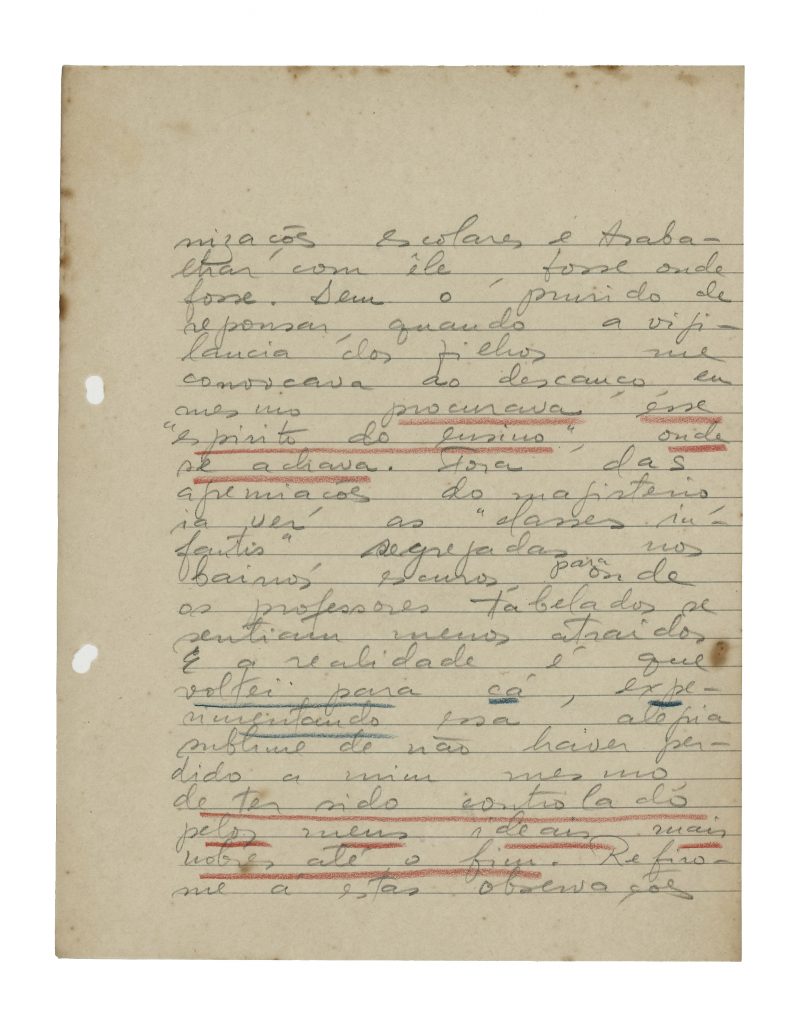 nizações escolares e traba-
lhar com êle, fosse onde
fosse. Sem o prurido de
reponsar, quando a vigi-
lancia dos filhos me
convocava ao descanço, eu
mesmo procurava êsse
"espirito do ensino", onde
se achava. Fora das
apreniações do magisterio
ia ver as "classes in-
fantis" segregadas nos
bairros escuros, para onde
os professores tabelados se
sentiam menos atraidos
E a realidade é que
voltei para cá, expe-
rimentando essa alegria
sublime de não haver per-
dido a mim mesmo
de ter sido controlado
pelos meus ideais mais
nobres até o fim. Refiro-
me á estas observações